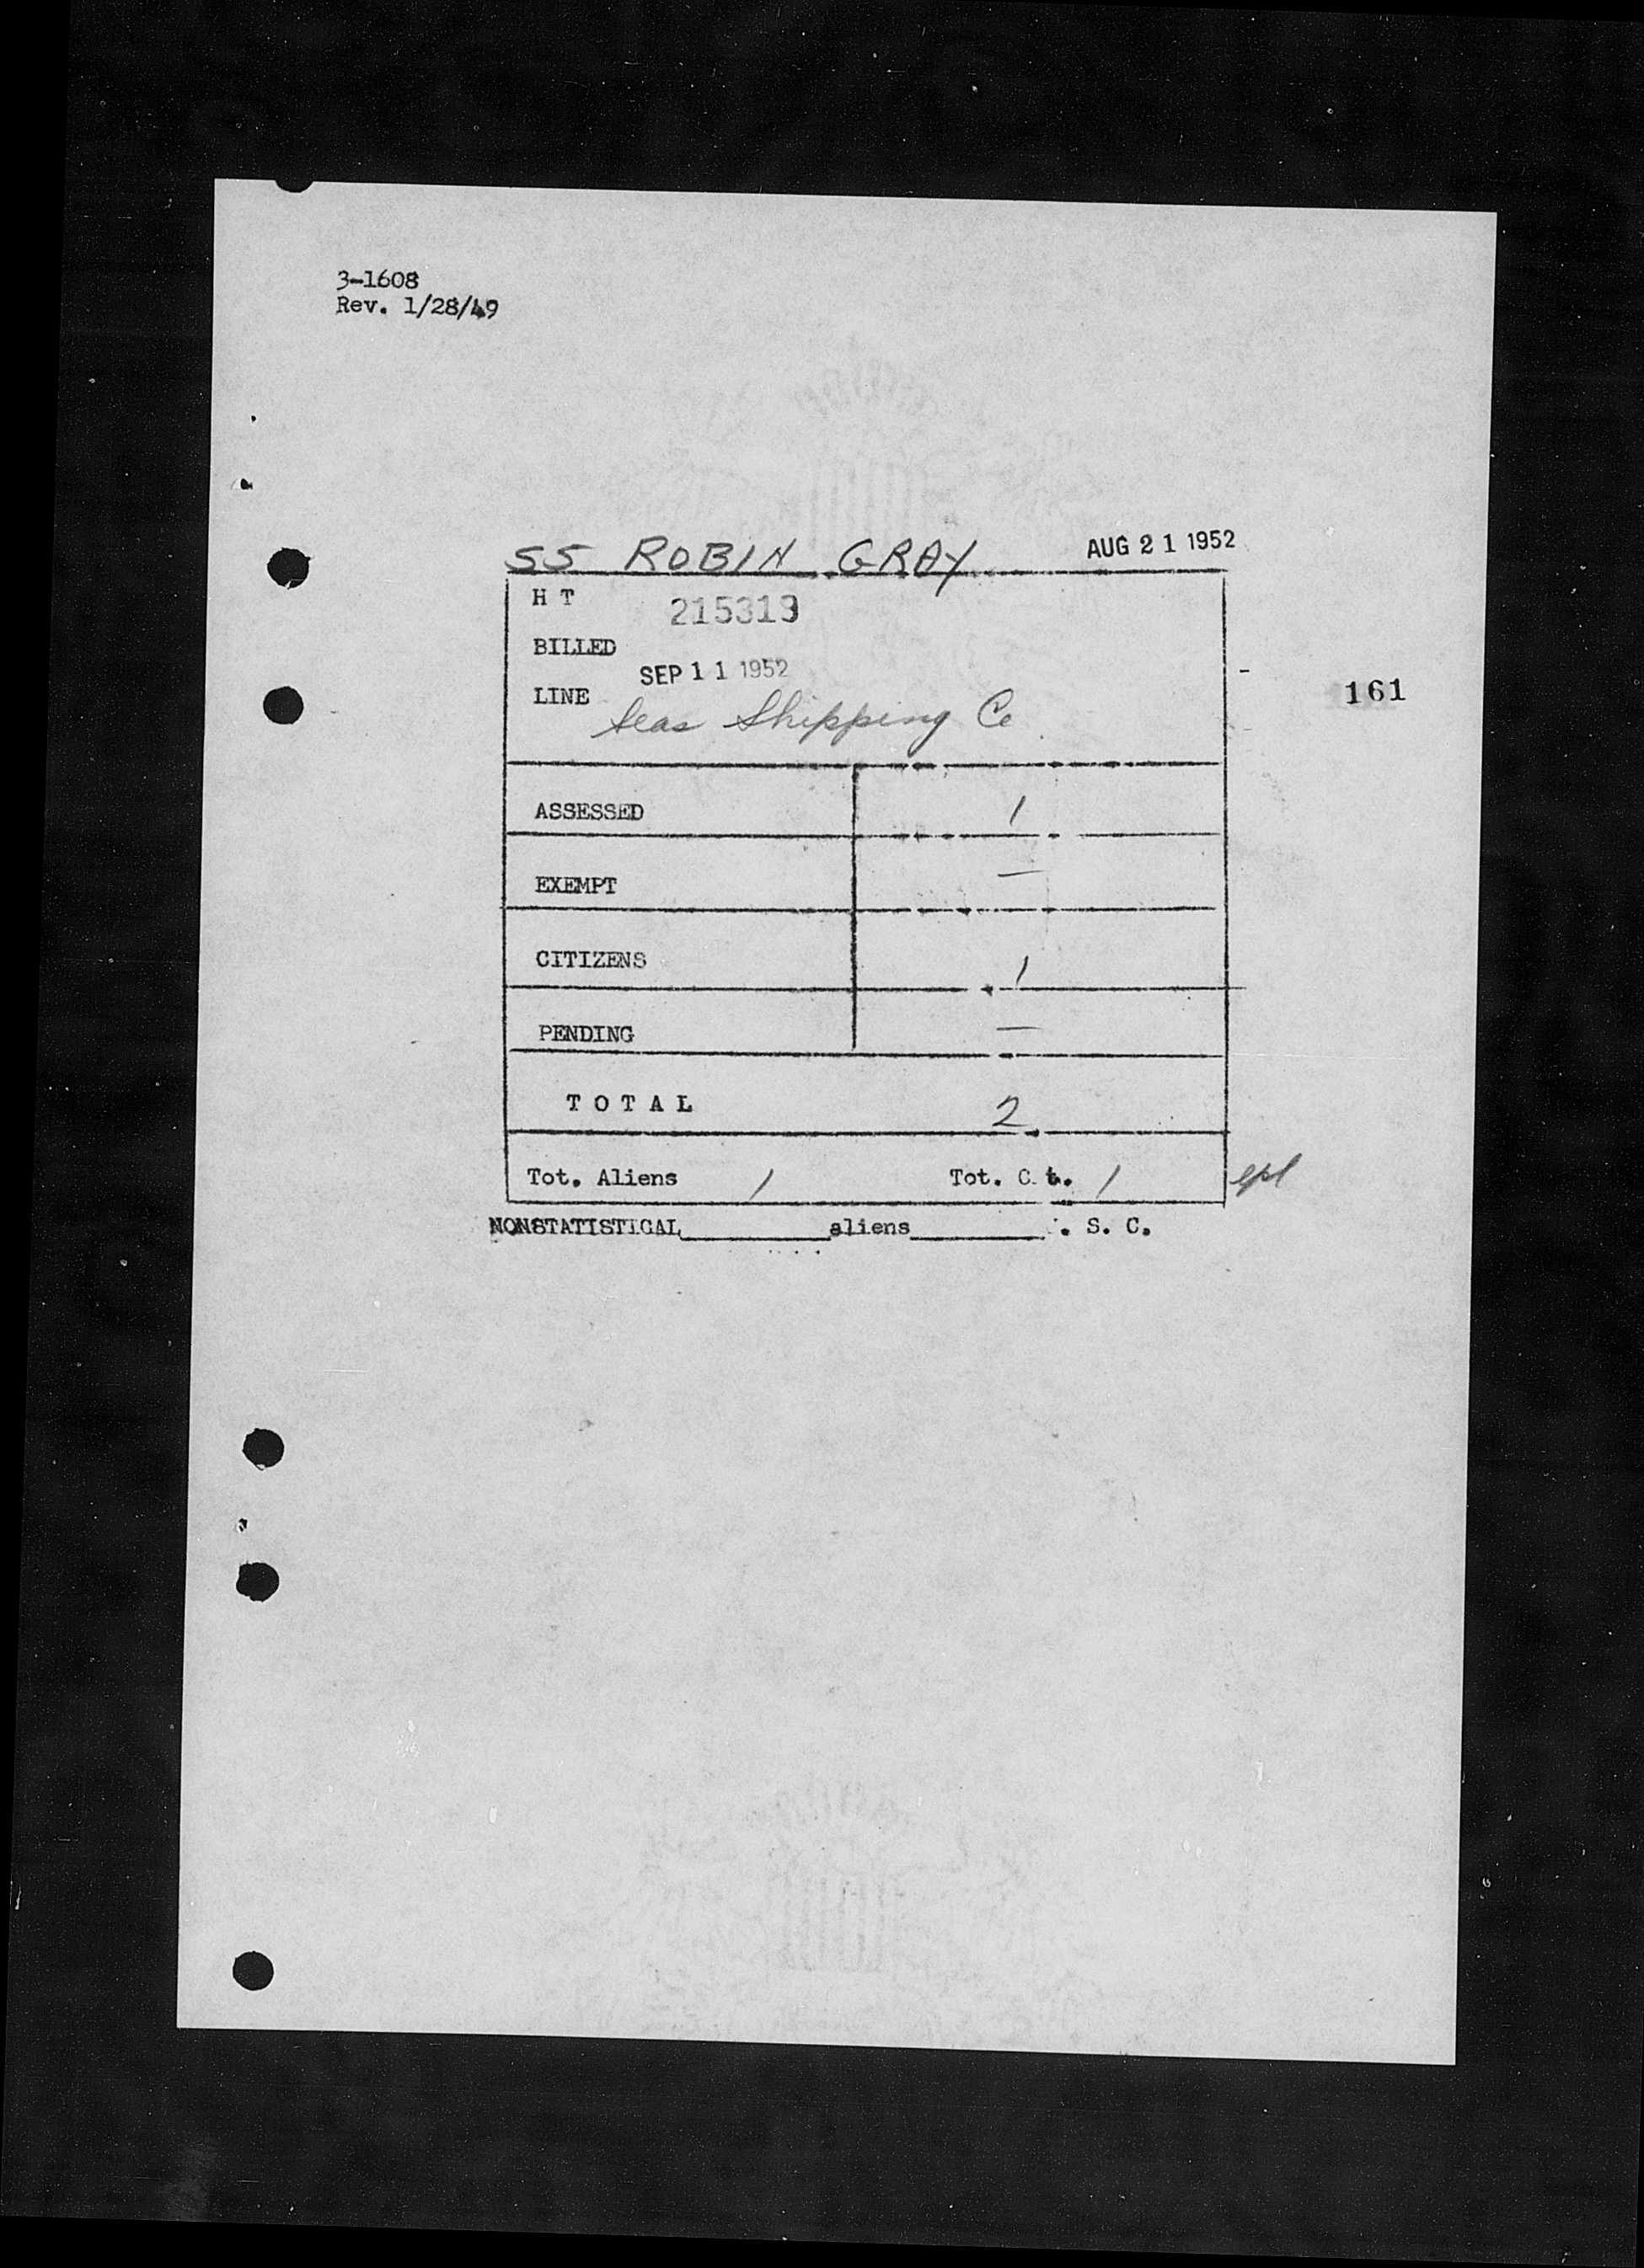 3-1608
Rev. 1/28/49
SS ROBIN GRAY AUG 21 1952
H T 215319
BILLED
SEP 11 1952
LINE Seas Shipping Co
161
ASSESSED 1
EXEMPT —
CITIZENS 1
PENDING —
TOTAL 2
Tot. Aliens 1 Tot. C t. 1
NONSTATISTICAL__________aliens__________. S. C.